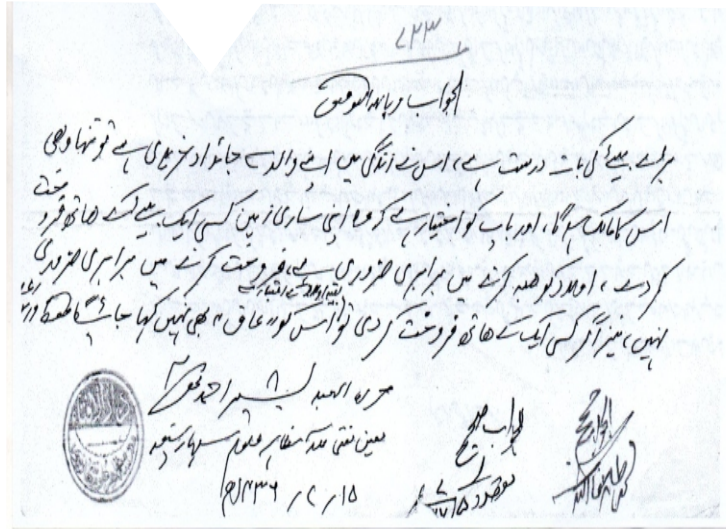 ۷۲۳
الجواب وباللہ التوفیق
بڑے بیٹے کی بات درست ہے، اس نے زندگی میں اپنے والد سے جائداد خریدی ہے تو تنہا وہی
اس کا مالک ہوگا، اور باپ کو اختیار ہے کہ وہ اپنی ساری زمین کسی ایک بیٹے کے ہاتھ فروخت
کردے، اولاد کو ھبہ کرنے میں برابری ضروری ہے، فروخت کرنے میں برابری ضروری
نہیں، نیز اگر کسی ایک کے ہاتھ فروخت کردی تو اس کو عاق بھی نہیں کہا جائے گا فقط
حررہ العبد احمد
معین مفتی مدرسہ مظاہر علوم سہارنپور
۱۵ / ۲ / ۱۴۳۶ھ
الجواب صحیح
مقصود
الجواب صحیح